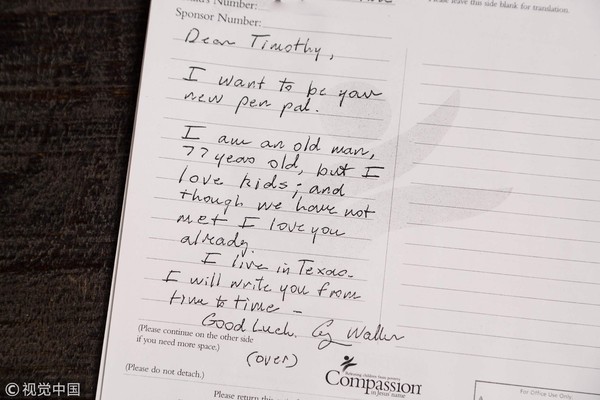 Number:
Please leave this side blank for translation.
Sponsor Number:
Dear Timothy,
I want to be your
new pen pal.
I am an old man,
77 years old, but I
love kids; and
though we have not
met I love you
already.
I live in Texas-
I will write you from
time to time -
Good Luck. G. Walker
(Please continue on the other side
if you need more space.)
(over)
(Please do not detach.)
Releasing children from poverty
Compassion
in Jesus' name
Please return this
For Office Use Only
A
©视觉中国